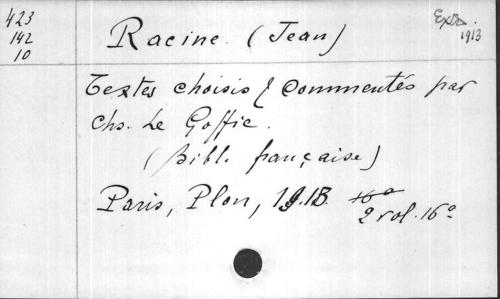 423
142
10
Racine. (Jean)
1913
Textes choisis & commentés par
Chs. Le Goffic.
(Bibl. française)
Paris, Plon, 1913. 16°
2 vol. 16°